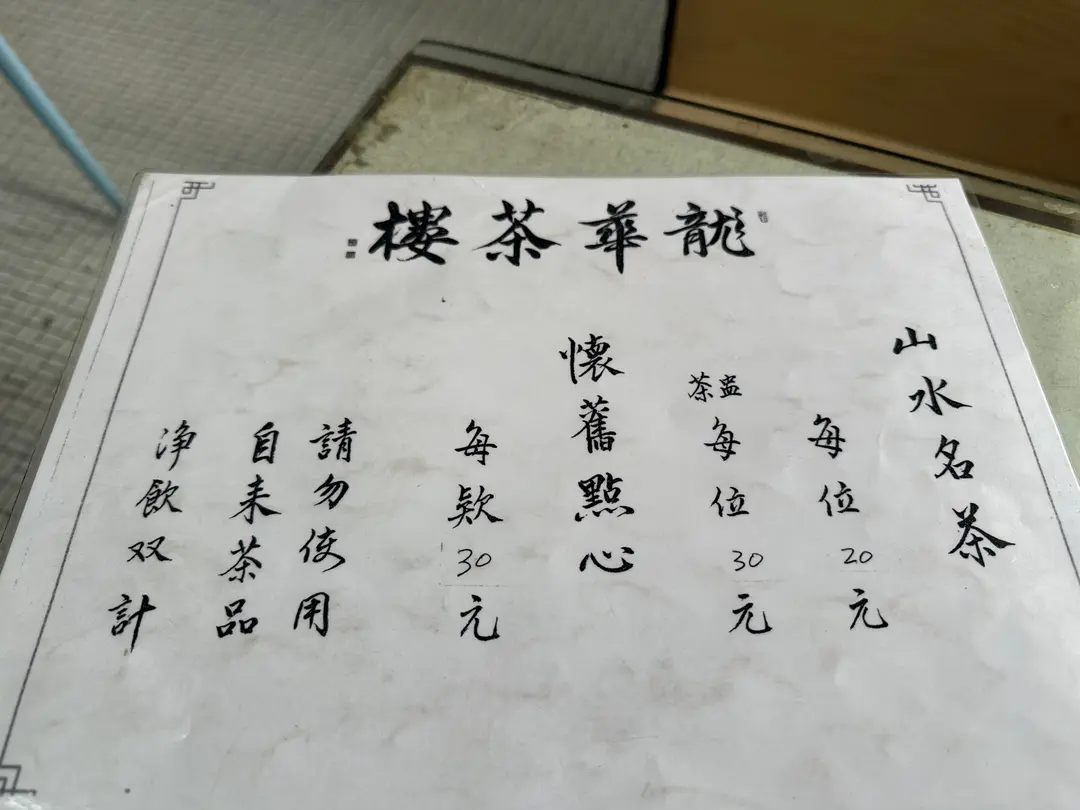 龍華茶樓
山水名茶
每位20元
茶盅每位30元
懷舊點心
每款30元
請勿使用
自来茶品
净飲双計